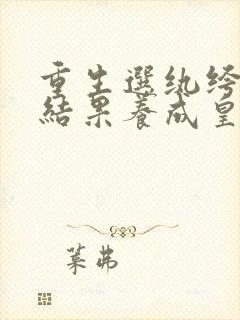 重生選紈絝
結果養成皇
葉弗